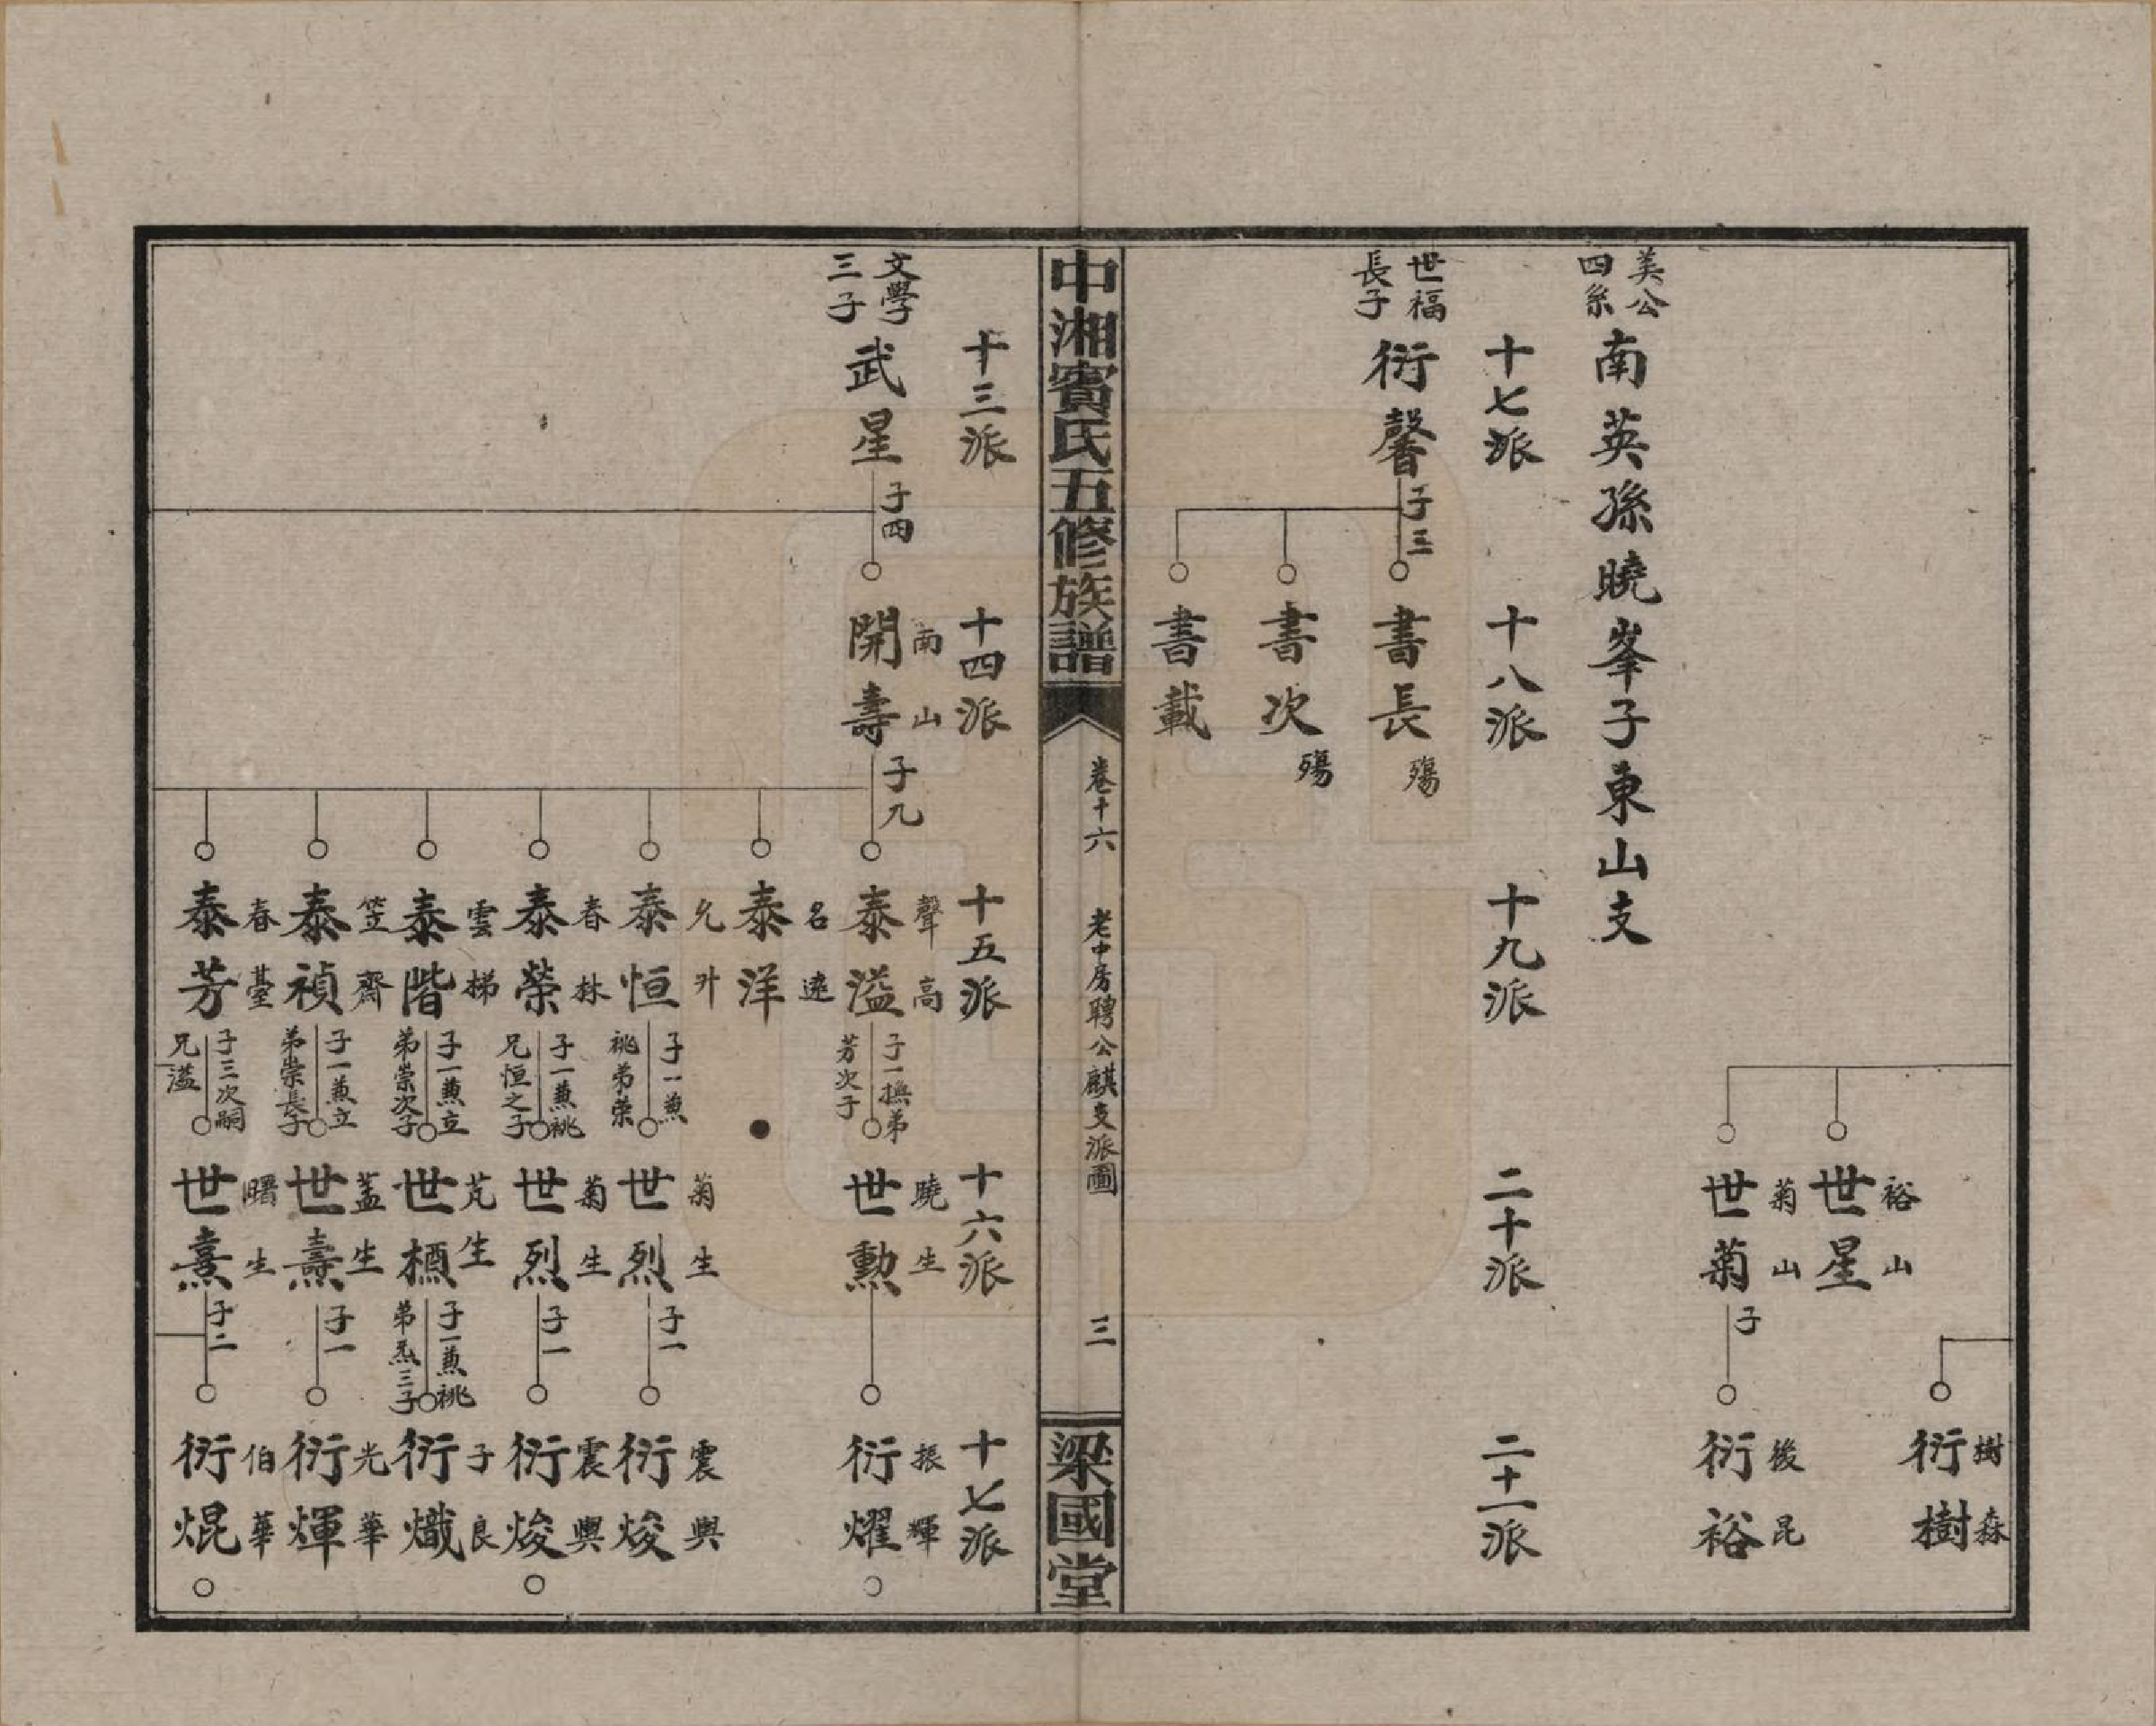 樹森
衍樹
裕山
世星
菊山
世菊 子
後昆
衍裕
美公四系
南英孫曉峯子東山支
十七派 十八派 十九派 二十派 二十一派
世福長子
衍馨 子三
書長 殤
書次 殤
書載
中湘賓氏五修族譜
卷十六 老中房聘公麒支派圖 三
梁國堂
十三派 十四派 十五派 十六派 十七派
文學三子
武星 子四
南山
開壽 子九
聲高
泰溢 子一撫弟芳次子
曉生
世勳
振輝
衍燿
名達
泰洋
允升
泰恒 子一兼祧弟荣
菊生
世烈 子一
震興
衍焌
春林
泰榮 子一兼祧兄恒之子
菊生
世烈 子一
震興
衍焌
雲梯
泰階 子一兼立弟崇次子
芃生
世槱 子一兼祧弟炁三子
子良
衍熾
笠齋
泰禎 子一兼立弟崇長子
蓋生
世燾 子一
光華
衍煇
春臺
泰芳 子三次嗣兄溢
曙生
世熹 子二
伯華
衍焜